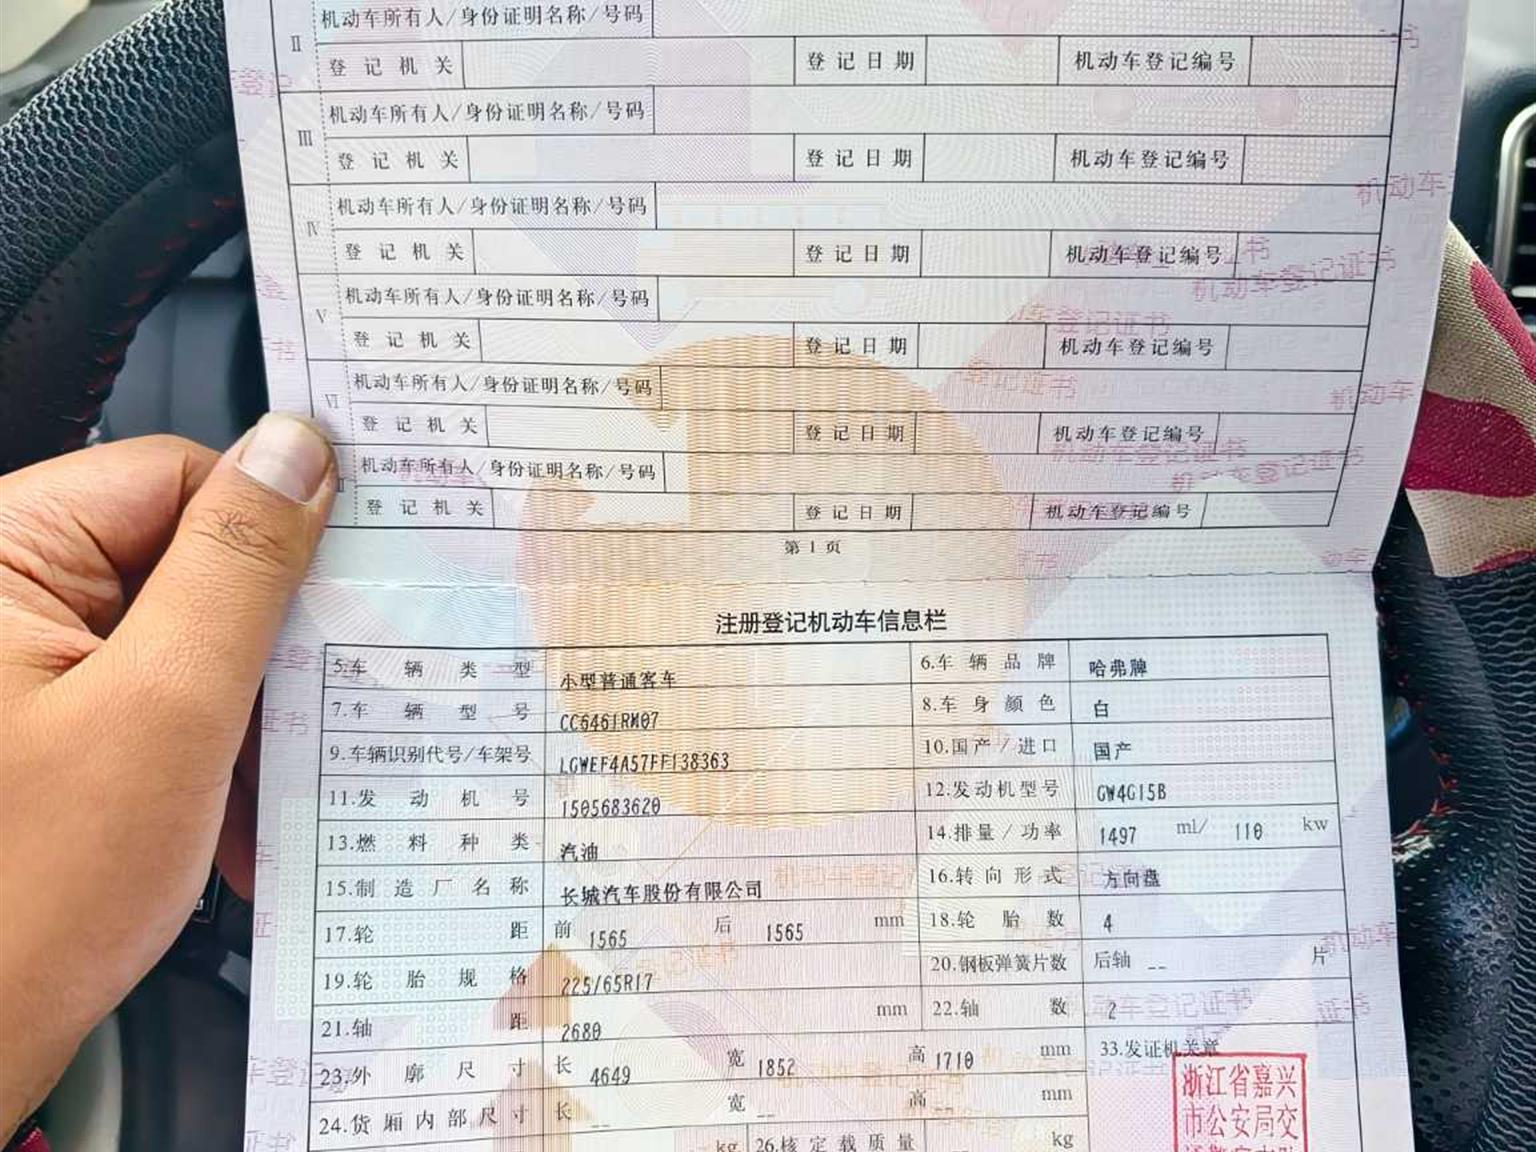 机动车所有人/身份证明名称/号码
Ⅱ
登记机关 登记日期 机动车登记编号
机动车所有人/身份证明名称/号码
Ⅲ
登记机关 登记日期 机动车登记编号
机动车所有人/身份证明名称/号码
Ⅳ
登记机关 登记日期 机动车登记编号
机动车所有人/身份证明名称/号码
Ⅴ
登记机关 登记日期 机动车登记编号
机动车所有人/身份证明名称/号码
Ⅵ
登记机关 登记日期 机动车登记编号
机动车所有人/身份证明名称/号码
登记机关 登记日期 机动车登记编号
第 1 页
注册登记机动车信息栏
5.车辆类型 小型普通客车 6.车辆品牌 哈弗牌
7.车辆型号 CC6461RM07 8.车身颜色 白
9.车辆识别代号/车架号 LGWEF4A57FF138363 10.国产/进口 国产
11.发动机号 1505683620 12.发动机型号 GW4G15B
13.燃料种类 汽油 14.排量/功率 1497 ml/ 110 kw
15.制造厂名称 长城汽车股份有限公司 16.转向形式 方向盘
17.轮距 前 1565 后 1565 mm 18.轮胎数 4
19.轮胎规格 225/65R17 20.钢板弹簧片数 后轴 -- 片
21.轴距 2680 mm 22.轴数 2
23.外廓尺寸 长 4649 宽 1852 高 1710 mm 33.发证机关章
24.货厢内部尺寸 长 -- 宽 -- 高 -- mm
kg 26.核定载质量 kg
浙江省嘉兴
市公安局交